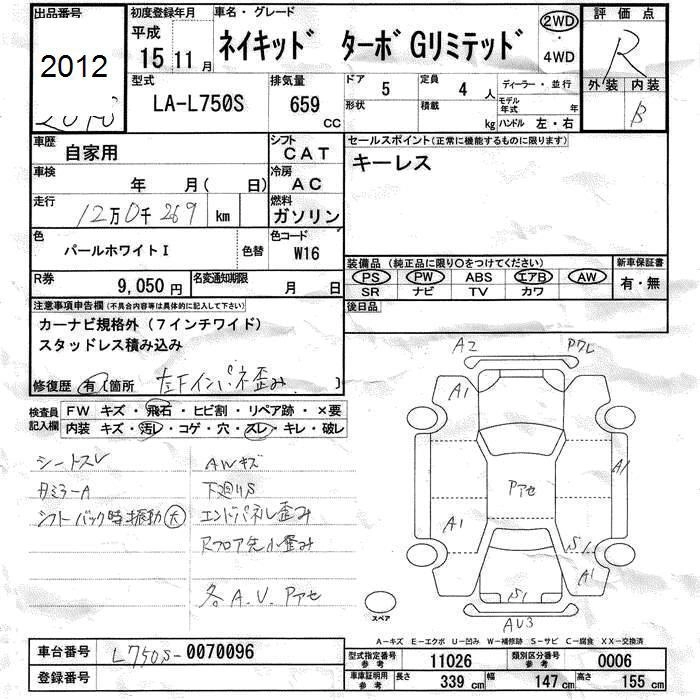 出品番号 初度登録年月 車名・グレード 評価点
2012 平成 15 11月 ネイキッド ターボ Gリミテッド 2WD・4WD R
型式 排気量 ドア 5 定員 4人 ディーラー・並行 外装 内装
LA-L750S 659 CC 形状 積載 kg モデル年式 年 ハンドル 左・右 B
車歴 自家用 シフト CAT セールスポイント(正常に機能するものに限ります)
車検 年 月(日) 冷房 AC キーレス
走行 12万0千269 km 燃料 ガソリン
色 パールホワイトI 色替 色コード W16
装備品(純正品に限り○をつけてください) 新車保証書
R券 9,050円 名変通知期限 月 日 PS PW ABS エアB AW 有・無
SR ナビ TV カワ
注意事項申告欄(不具合内容等は具体的に記入して下さい) 後日品
カーナビ規格外(7インチワイド)
スタッドレス積み込み
修復歴 有 [箇所 左Fインパネ歪み ]
検査員記入欄 FW キズ・飛石・ヒビ割・リペア跡・×要
内装 キズ・汚レ・コゲ・穴・スレ・キレ・破レ
シートスレ AWキズ
下廻りS
シフトバック時振動大 エンドパネル歪み
Rフロア先小歪み
各A.U.Pアセ
A2 P7L
A1
A1
Pアセ
A1
S1
A1
S1
AU3
スペア
A-キズ E-エクボ U-凹み W-補修跡 S-サビ C-腐食 XX-交換済
車台番号 L750S-0070096 型式指定番号 参考 11026 類別区分番号 参考 0006
登録番号 車庫証明用 参考 長さ 339 cm 幅 147 cm 高さ 155 cm